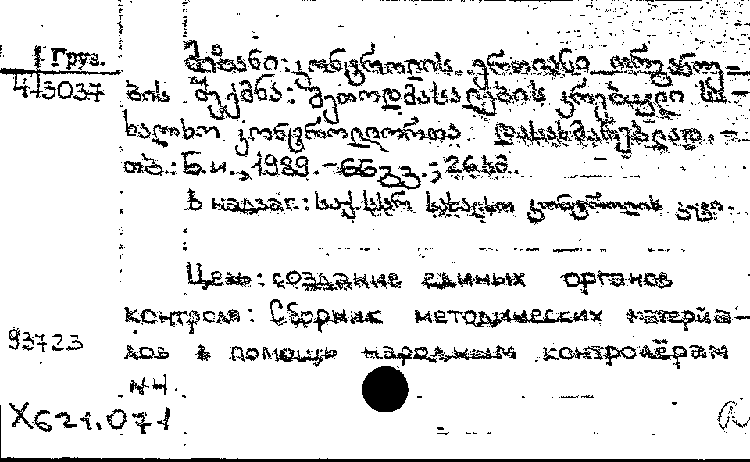 Груз.
4-3037
მიზანი: კონტროლის ერთიანი ორგანოე-
ბის შექმნა: მეთოდმასალების კრებული სა-
ხალხო კონტროლიორთა დასახმარებლად. -
თბ.: Б.и., 1989. - 66 გვ.; 26 სმ.
В надзаг.: საქ. სსრ სახალხო კონტროლის კომ.
Цель: создание единых органов
контроля: Сборник методических материа-
лов в помощь народным контролёрам
93723
X621.071